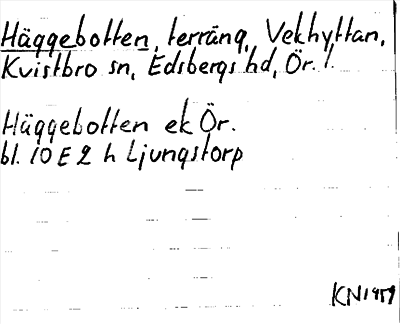 Häggebotten, terräng, Vekhyttan,
Kvistbro sn, Edsbergs hd, Ör. l.
Häggebotten ek Ör.
bl. 10 E 2 h Ljungstorp
KN1959